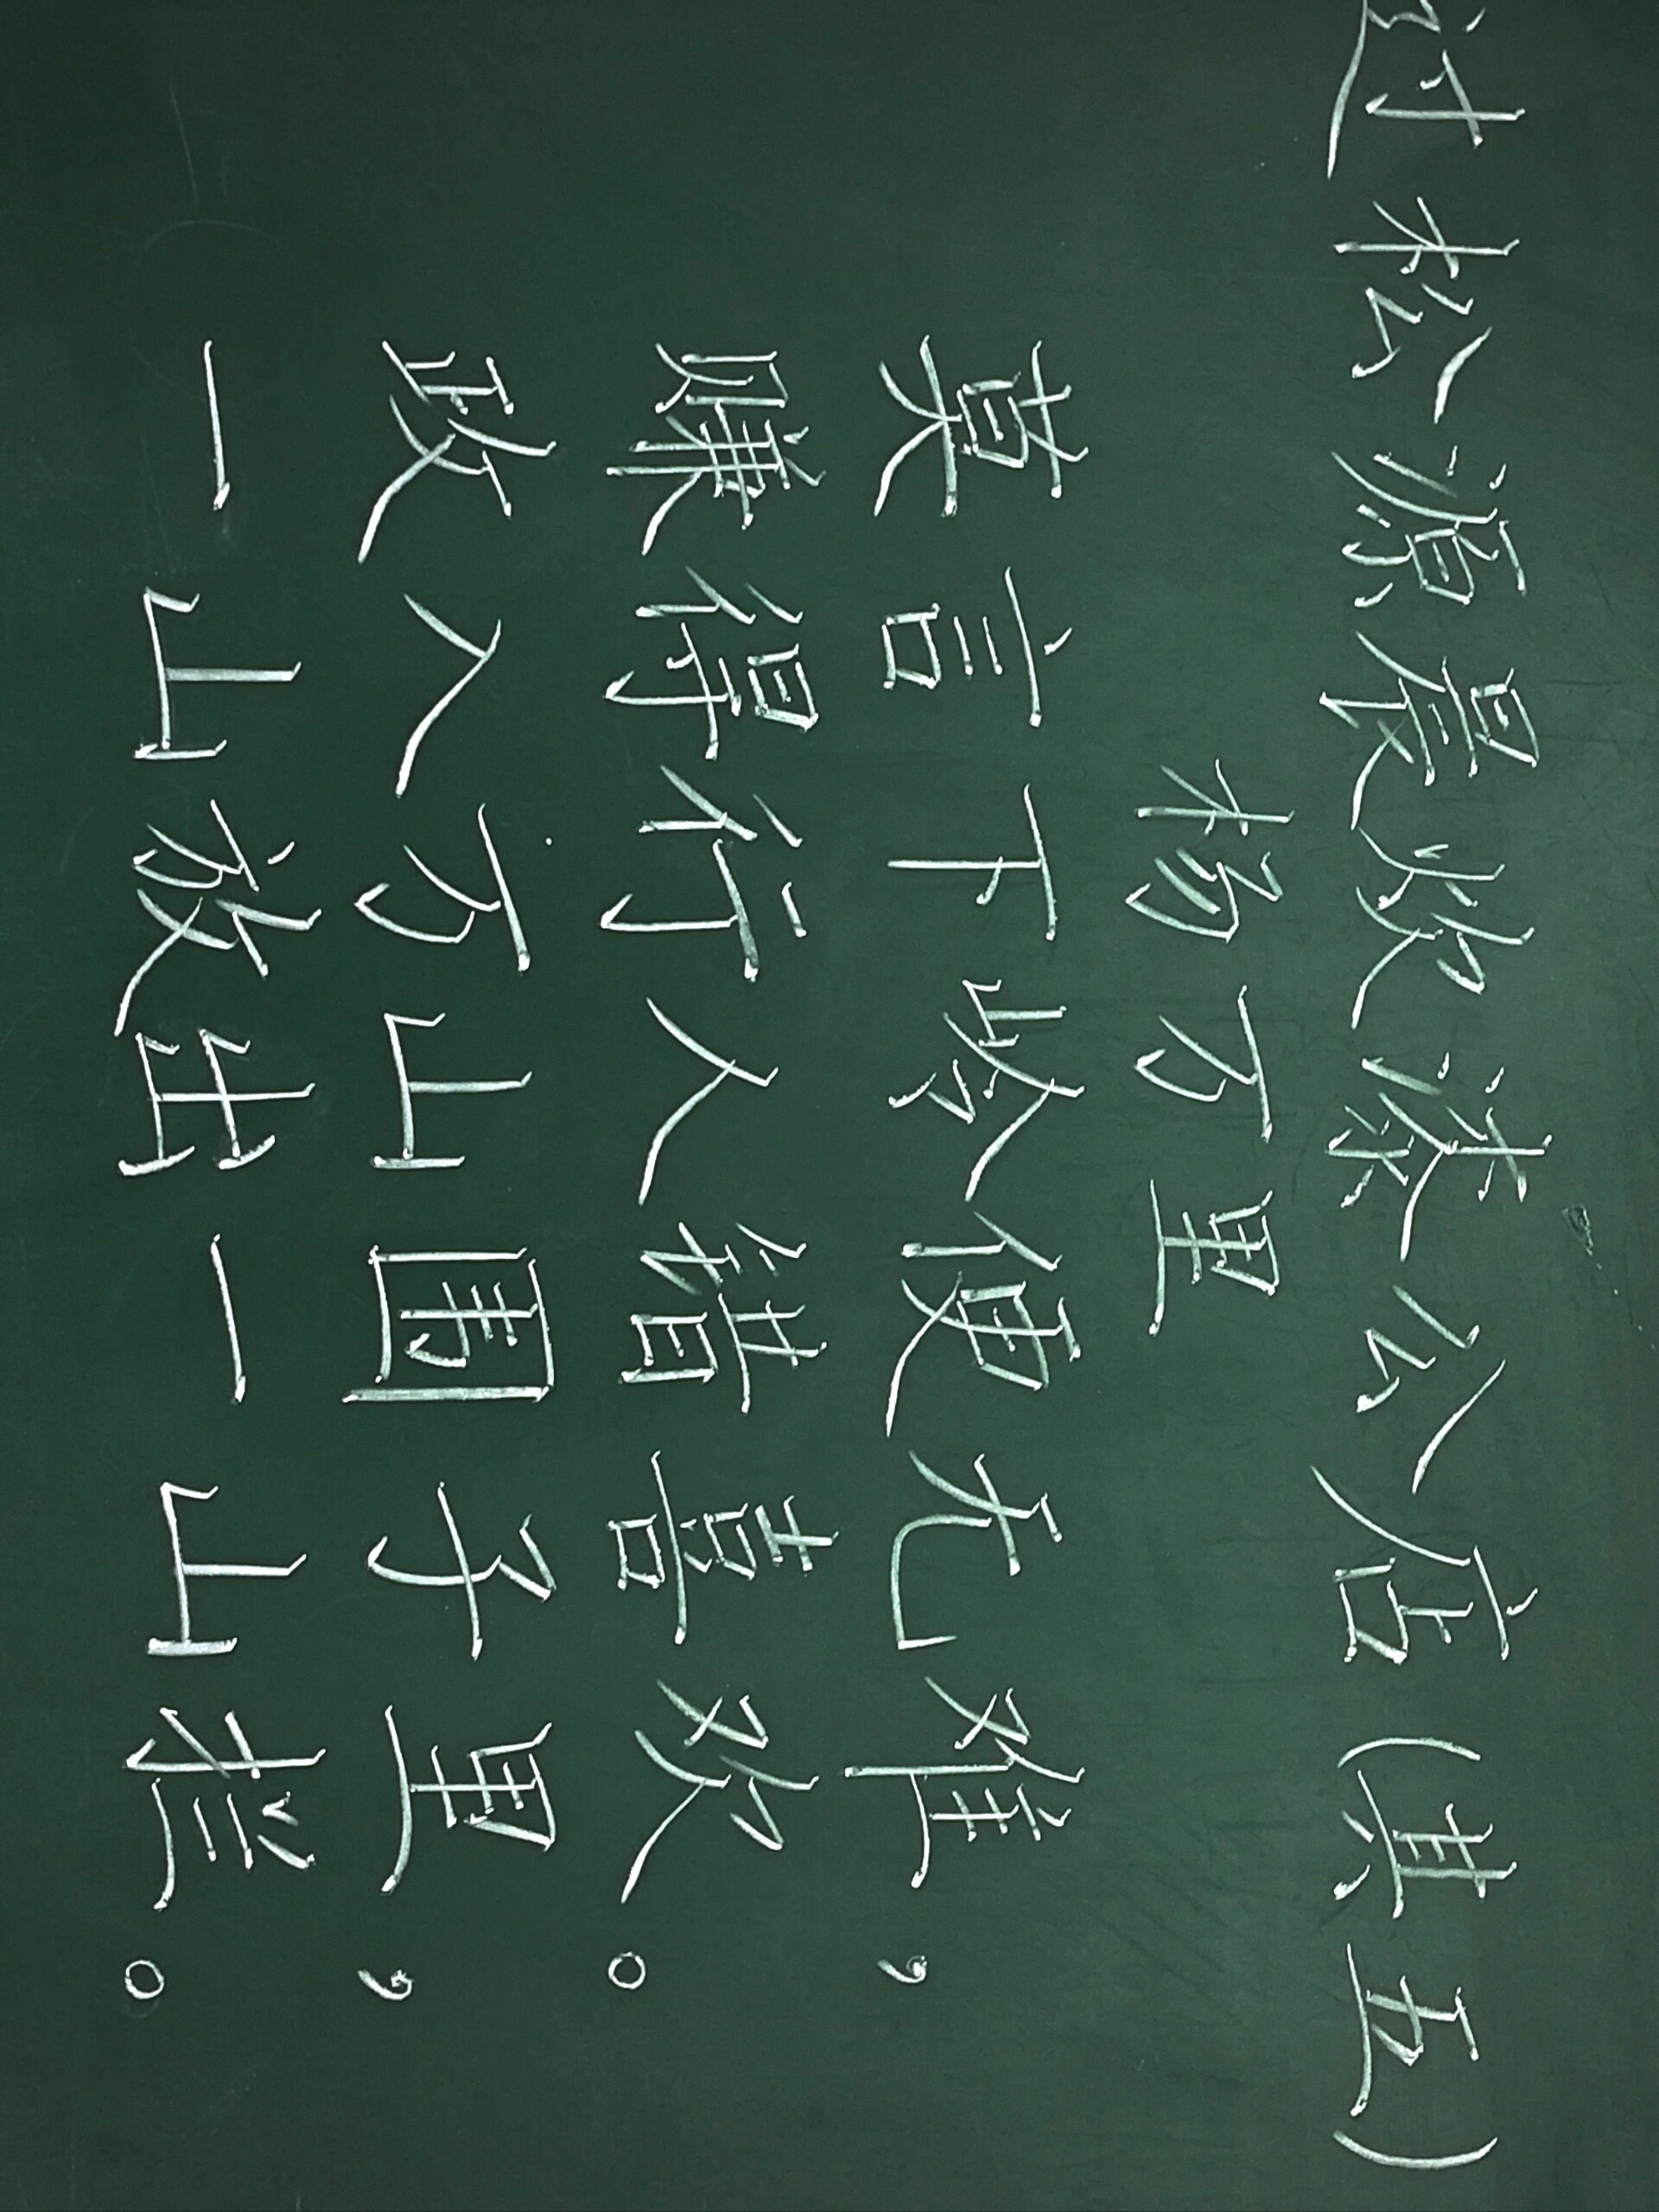 过松源晨炊漆公店(其五)
杨万里
莫言下岭便无难，
赚得行人错喜欢。
政入万山围子里，
一山放出一山拦。